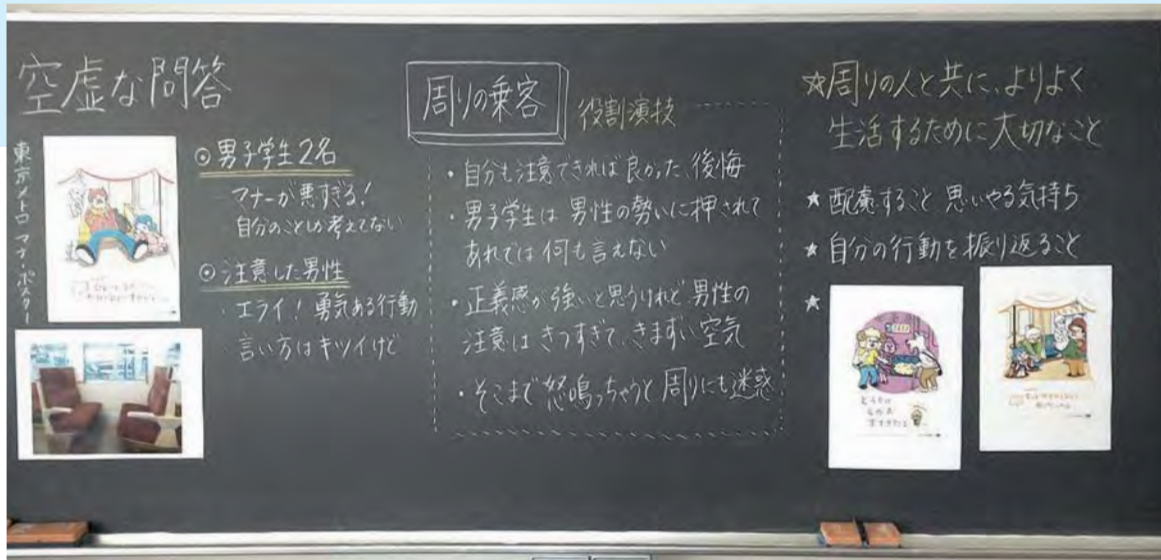 空虚な問答
東京メトロ マナーポスター
◎男子学生2名
マナーが悪すぎる!
自分のことしか考えてない
◎注意した男性
・エライ!勇気ある行動
・言い方はキツイけど
周りの乗客
役割演技
・自分も注意できれば良かった、後悔
・男子学生は男性の勢いに押されて
あれでは何も言えない
・正義感が強いと思うけれど、男性の
注意はきつすぎて、きまずい空気
・そこまで怒鳴っちゃうと周りにも迷惑
☆周りの人と共に、よりよく
生活するために大切なこと
★配慮すること 思いやる気持ち
★自分の行動を振り返ること
★